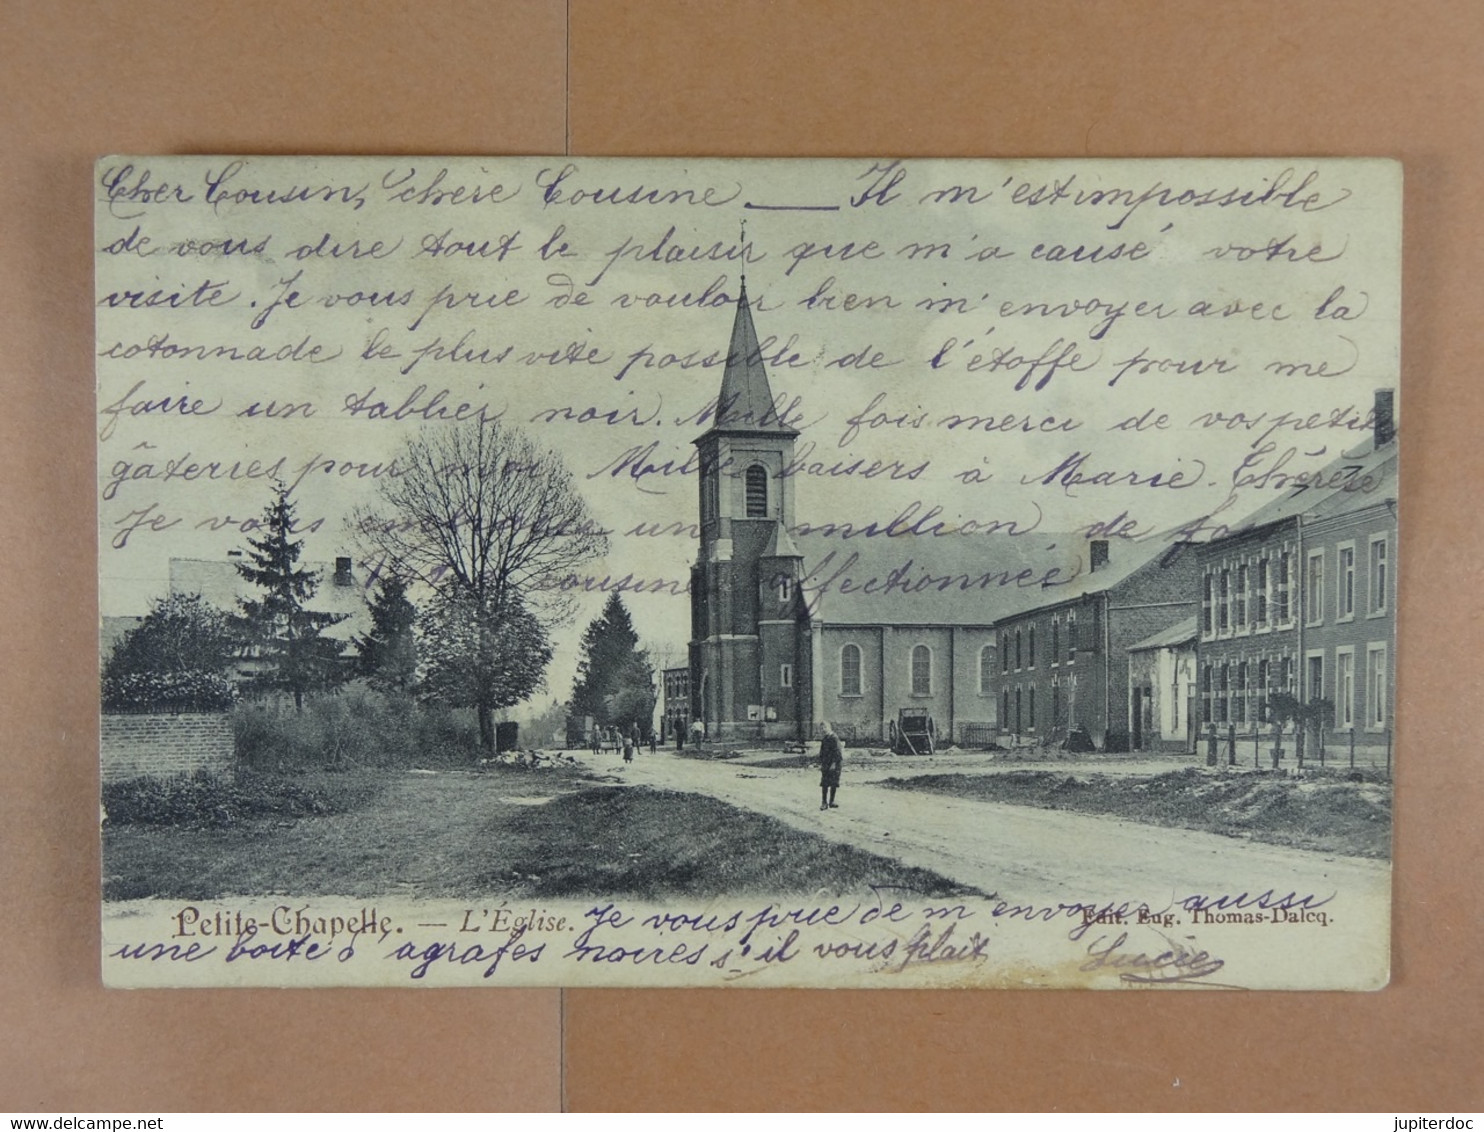 Cher Cousin, chère Cousine ___ Il m'est impossible
de vous dire tout le plaisir que m'a causé votre
visite. Je vous prie de vouloir bien m'envoyer avec la
cotonnade le plus vite possible de l'étoffe pour me
faire un tablier noir. Mille fois merci de vos petites
gâteries pour moi. Mille baisers à Marie-Thérèse
Je vous embrasse un million de fois
cousine affectionnée
Petite-Chapelle. — L'Église.
Edit. Eug. Thomas-Dalcq.
Je vous prie de m'envoyer aussi
une boîte d'agrafes noires s'il vous plait
Lucie
delcampe.net
jupiterdoc